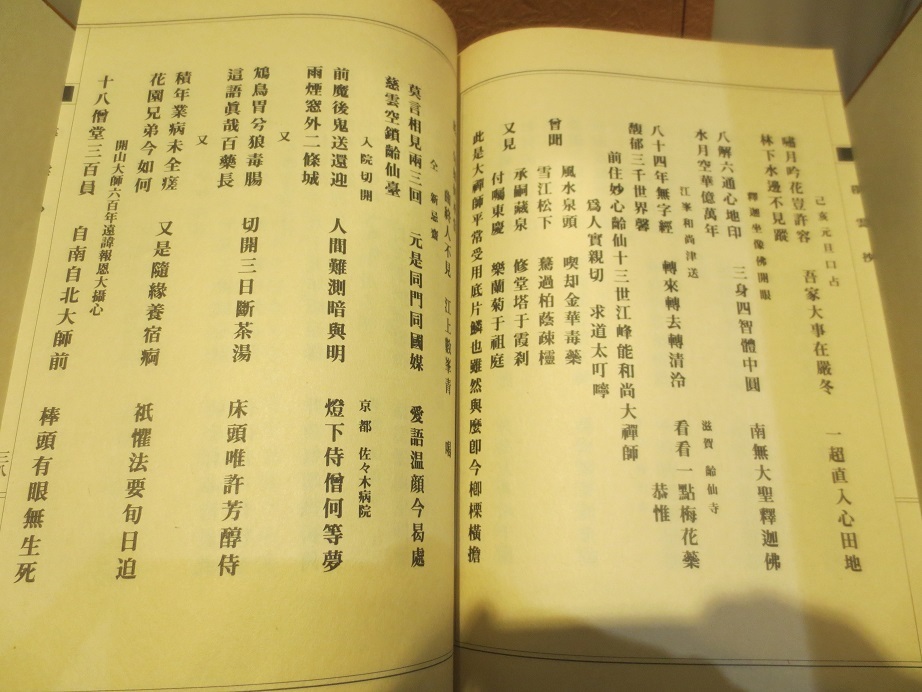 己亥元旦口占
嘯月吟花豈許容　吾家大事在嚴冬　一超直入心田地
林下水邊不見蹤
釋迦坐像佛開眼
八解六通心地印　三身四智體中圓　南無大聖釋迦佛
水月空華億萬年
江峯和尚津送　滋賀　齡仙寺
八十四年無字經　轉來轉去轉清泠　看看一點梅花藥
馥郁三千世界馨　恭惟
前住妙心齡仙十三世江峰能和尚大禪師
爲人實親切　求道太叮嚀
風水泉頭　喫却金華毒藥
曾聞
雪江松下　驀過柏蔭疎欞
承嗣藏泉　修堂塔于霞刹
又見
付囑東慶　樂蘭菊于祖庭
此是大禪師平常受用底片鱗也雖然與麼卽今楖橫擔
人不見　江上數峯青　喝
仝　新忌齋
莫言相見兩三回　元是同門同國媒　愛語温顏今曷處
慈雲空鎖齡仙臺
入院切開　京都　佐々木病院
前魔後鬼送還迎　人間難測暗與明　燈下侍僧何等夢
雨煙窓外二條城
又
鴆鳥胃兮狼毒腸　切開三日斷茶湯　床頭唯許芳醇侍
這語眞哉百藥長
又
積年業病未全瘥　又是隨緣養宿痾　祇懼法要旬日迫
花園兄弟今如何
開山大師六百年遠諱報恩大攝心
十八僧堂三百員　自南自北大師前　棒頭有眼無生死